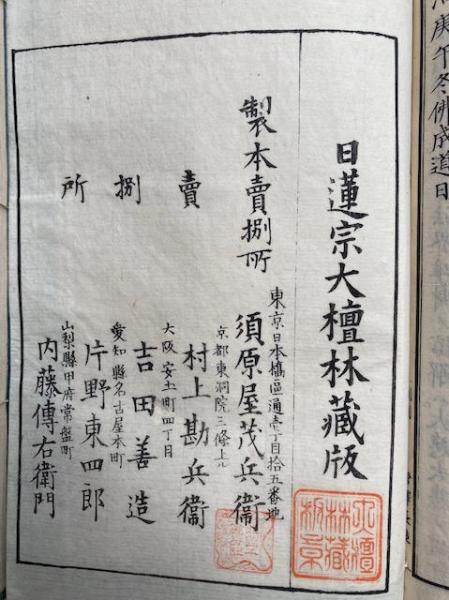 庚午冬佛成道日
日蓮宗大檀林藏版
製本賣捌所
東京日本橋區通壱丁目拾五番地
須原屋茂兵衞
賣捌所
京都東洞院三條上ル
村上勘兵衞
大阪安土町四丁目
吉田善造
愛知縣名古屋本町
片野東四郎
山梨縣甲府常盤町
内藤傳右衞門
大檀林藏版章